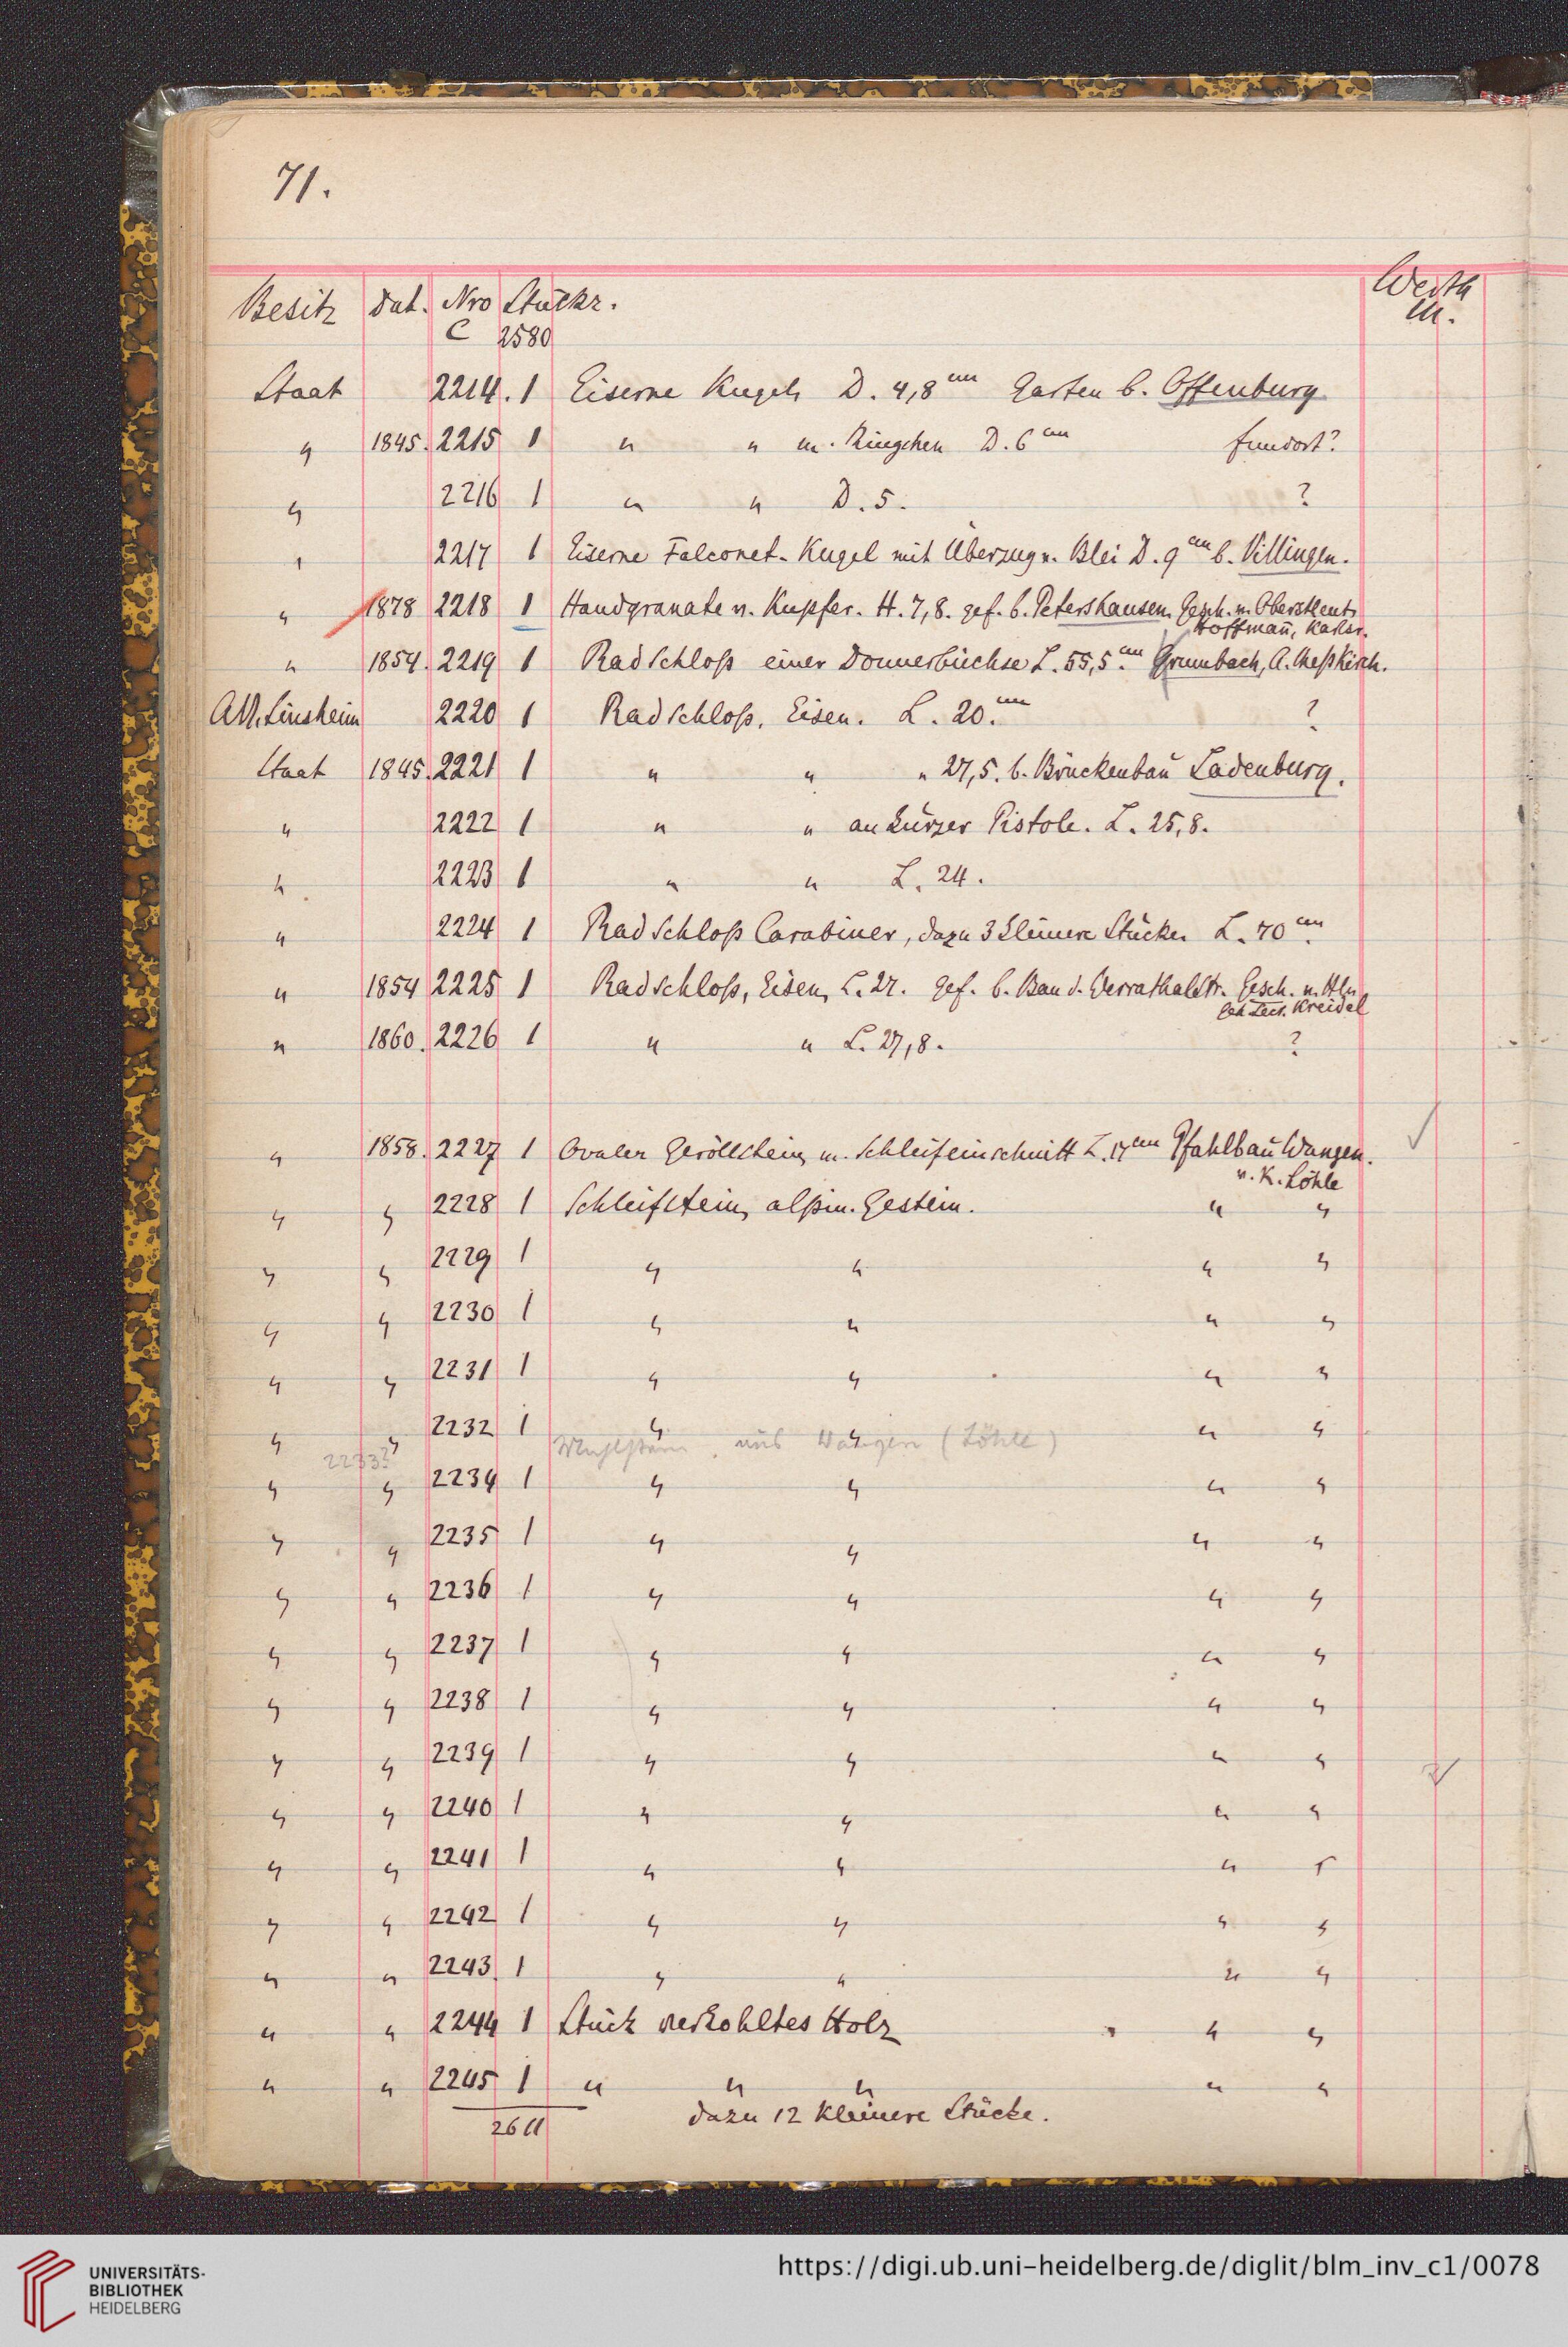 71.
Besitz Dat. Nro Stückz. Werth
C 2580 M.
Staat 2214. 1 Eiserne Kugel, D. 4,8 cm Garten b. Offenburg
" 1845. 2215 1 " " m. Ringchen D. 6 cm Fundort?
" 2216 1 " " D. 5. ?
" 2217 1 Eiserne Falconet-Kugel mit Überzug v. Blei D. 9 cm b. Villingen.
" 1878 2218 1 Handgranate v. Kupfer. H. 7,8. gef. b. Petershausen. Gesch. v. Oberstleut.
Hoffmañ, Karlsr.
" 1854. 2219 1 Radschloß einer Donnerbüchse L. 55,5 cm Grumbach, A. Meßkirch.
A.V. Sinsheim 2220 1 Radschloß, Eisen. L. 20. cm ?
Staat 1845. 2221 1 " " " 27,5. b. Brückenbau Ladenburg.
" 2222 1 " " an kurzer Pistole. L. 25,8.
" 2223 1 " " L. 24.
" 2224 1 Radschloß Carabiner, dazu 3 kleinere Stücke. L. 70 cm.
" 1854 2225 1 Radschloß, Eisen, L. 27. gef. b. Bau d. Werrathalstr. Gesch. v. Hln
Kreidel
" 1860. 2226 1 " " L. 27,8. ?
" 1858. 2227 1 Ovaler Geröllstein, m. Schleifeinschnitt L. 17 cm Pfahlbau Wangen.
v. K. Löhle
" " 2228 1 Schleifstein, alpin. Gestein. " "
" " 2229 1 " " " "
" " 2230 1 " " " "
" " 2231 1 " " " "
" " 2232 1 " " " "
2233? Mühlstein, aus Wangen (Löhle)
" " 2234 1 " " " "
" " 2235 1 " " " "
" " 2236 1 " " " "
" " 2237 1 " " " "
" " 2238 1 " " " "
" " 2239 1 " " " "
" " 2240 1 " " " "
" " 2241 1 " " " "
" " 2242 1 " " " "
" " 2243 1 " " " "
" " 2244 1 Stück verkohltes Holz " "
" " 2245 1 " " " " "
2611 dazu 12 kleinere Stücke.
UNIVERSITÄTS-
BIBLIOTHEK
HEIDELBERG
https://digi.ub.uni-heidelberg.de/diglit/blm_inv_c1/0078